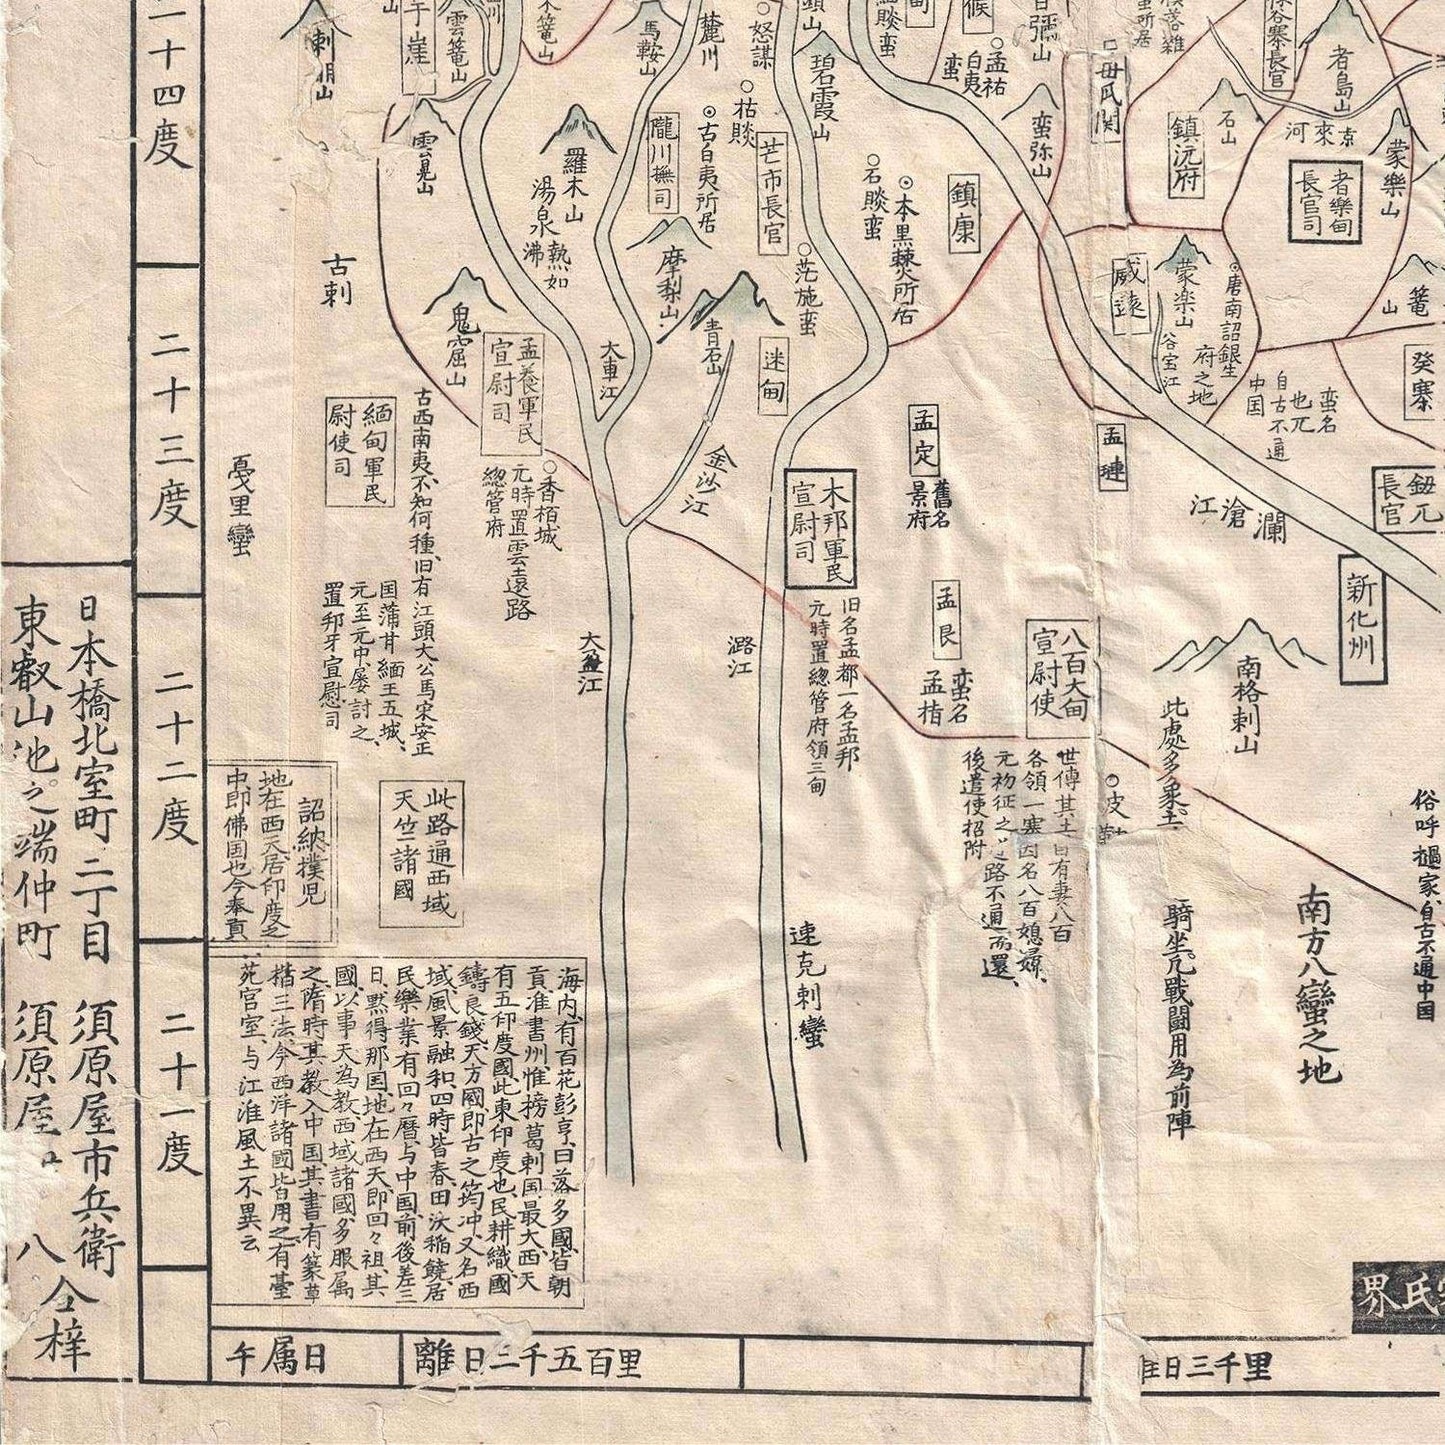 二十四度
二十三度
二十二度
二十一度
日本橋北室町二丁目 須原屋市兵衛
東叡山池之端仲町 須原屋
八
仝梓
午属日
離日三千五百里
日三千里
古刺
戞里蠻
雲篭山
雲晃山
羅木山
湯泉
熱如
沸
鬼窟山
馬鞍山
麓川
隴川撫司
摩梨山
青石山
大車江
金沙江
大盈江
潞江
怒謀
枯賧
古白夷所居
芒市長官
茫施蛮
迷甸
碧霞山
石賧蛮
本黒棘所居
鎮康
孟祐
白夷
蛮
蛮弥山
孟養軍民
宣尉司
香栢城
元時置雲遠路
總管府
緬甸軍民
尉使司
古西南夷不知何種、旧有江頭大公馬宋安正
国蒲甘緬王五城、
元至元中屡討之、
置邦牙宣慰司
木邦軍民
宣尉司
旧名孟都一名孟邦
元時置總管府領三甸
孟定
舊名
景府
孟艮
蛮名
孟指
孟璉
八百大甸
宣尉使
後遣使招附
速克剌蠻
石山
鎮沅府
者島山
者樂甸
長官司
蒙樂山
威遠
蒙楽山
谷宝江
唐南詔銀生
府之地
蛮名
也兀
自古不通
中国
癸寨
鈕兀
長官
瀾滄江
新化州
南格剌山
南方八蠻之地
騎坐凢戰闘用為前陣
自古不通中国
此路通西域
天竺諸國
詔納撲児
地在西天居印度之
中即佛国也今奉貢
海内有百花彭亨曰落多國、皆朝
貢准書州、惟榜葛剌国最大、西天
有五印度國、此東印度也、民耕織、國
鑄良錢、天方國即古之筠冲、又名西
域、風景融和、四時皆春、田沃稲饒、居
民樂業、有回々暦、与中国前後差三
日、黙得那国、地在西天、即回々祖、其
國以事天為教、西域諸國多服属
之、隋時其教入中国、其書有篆草
楷三法、今西洋諸國皆用之、有臺
苑宮室、与江淮風土不異云